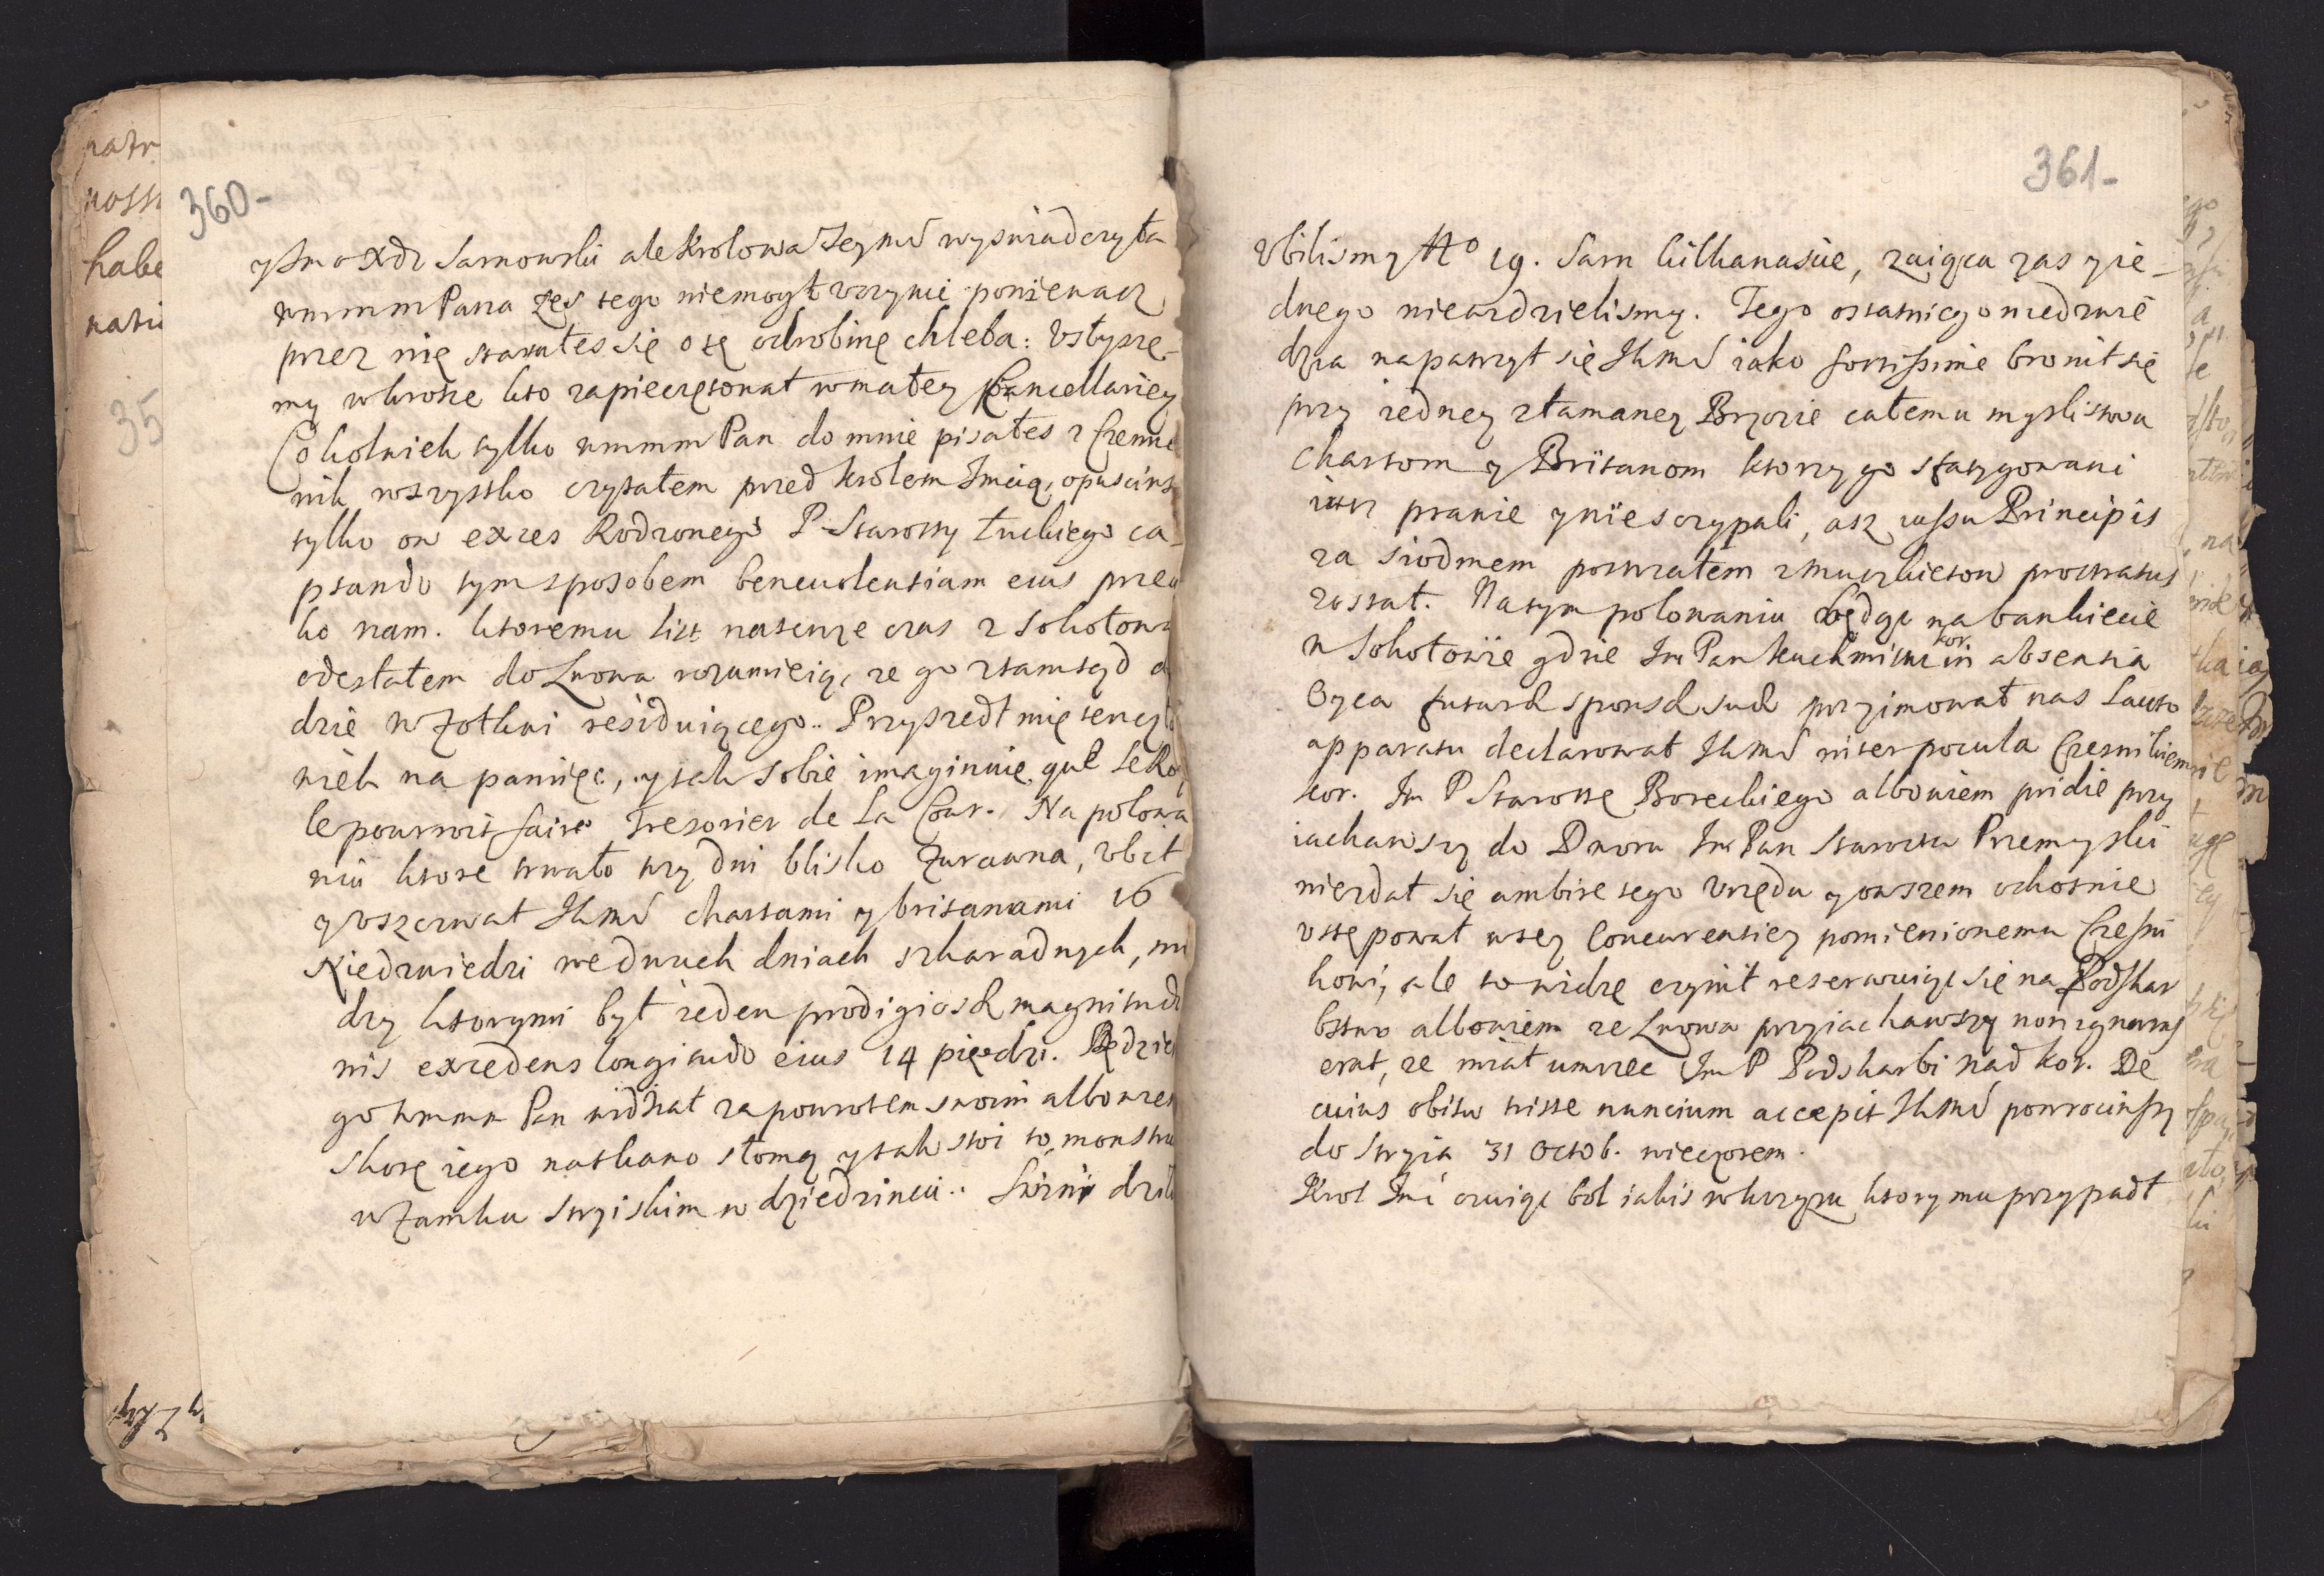 360-
y Jm X Sarnowski ale Krolowa Jeymć wyswiadczyła
wmmm Pana żeś tego niemogł vczynic poniewasz
przez nię starałes się o tę odrobinę chleba: Vsłysze-
my wkrotce kto zapieczętował w małey Cancellariey
Cokolwiek tylko wmmm Pan do mnie pisałes z Czemie
nik wszystko czytałem przed krolem Jmcią, opusciws
tylko on exces Rodzonego P Starosty Łuckiego ca-
ptando tym sposobem beneuolentiam eius przeci
ko nam. ktoremu list natenze czas z Sokołowa
odesłałem do Lwowa rozumieiąc ze go ztamtąd
dzie w Zołkwi residuiącego.. Przyszedł mię ten czło
wiek na pamięc, y tak sobie imaginuię que le Ro
le pourroit faire Tresorier de la Cour. Na polowa
niu ktore trwało trzy dni blisko Zurawna, vbił
y vszczwał JKMć chartami y britanami 16
Niedzwiedzi we dwuch dniach szkaradnych, mi
dzy ktorymi był ieden prodigiosæ magnitudi
nis excedens longitudo eius 14 piędzi. Będzie
go wmmm Pan widział za powrotem swoim albowiem
skorę iego natkano słomą y tak stoi to monstru
w Zamku Stryiskim w dziedzincu.. Swini dzik
361-
Vbilismy No 19. Sarn kilkanascie, zaiąca zas y ie-
dnego niewidzielismy. Tego ostatniego niedzwie
dzia napatrzył się JKMć iako fortissime bronił się
przy iedney złamaney Brzozie całemu myslistwu
Chartom y Britanom ktorzy go sfatygowani
iusz prawie y nie szczypali, asz iussu Principis
za siodmem postrzałem z muszkietow prostratus
został. Na tym polowaniu będąc na bankiecie
w Sokołowie gdzie Jm Pan Kuchmistrz kor. in absentia
Oyca futuræ sponsæ suæ przyimował nas lauto
apparatu declarował JKMć inter pocula Czesnikiem
kor. Jm P Starostę Boreckiego albowiem pridie przy
iachawszy do Dworu Jm Pan Starosta Przemyslki
niezdał się ambire tego Vrzędu y owszem ochotnie
vstępował w tey Concurentiey pomienionemu Czesni
kowi, ale to widzę czynił reserwuiąc się na Podskar
bstwo albowiem ze Lwowa przyiachawszy non ignarus
erat, ze miał umrzec Jm P Podskarbi Nad kor. De
cuius obitu triste nuncium accepit JKMć powrociwszy
do Stryia 31 Octob. wieczorem.
Krol Jmć czuiąc bol iakis w krzyzu ktory mu przypadł